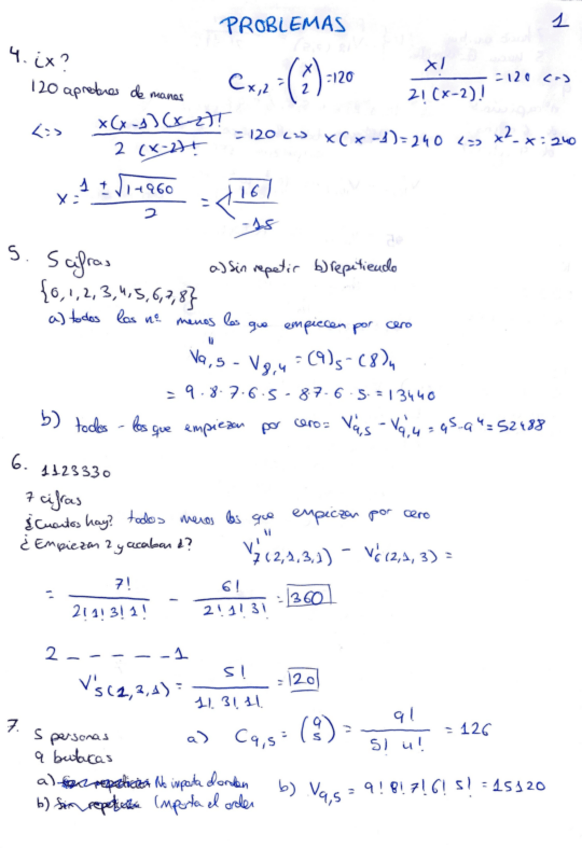 PROBLEMAS 1
4. ¿x?
120 apretones de manos
C_{x,2} = \binom{x}{2} = 120
\frac{x!}{2!(x-2)!} = 120 <=>
<=> \frac{x(x-1)(x-2)!}{2 (x-2)!} = 120 <=> x(x-1) = 240 <=> x^2 - x = 240
x = \frac{1 ± \sqrt{1+960}}{2} = < 16
-15
5. 5 cifras a) Sin repetir b) repitiendo
{0,1,2,3,4,5,6,7,8}
a) todos los nº menos los que empiecen por cero
"
V_{9,5} - V_{8,4} = (9)_5 - (8)_4
= 9·8·7·6·5 - 8·7·6·5 = 13440
b) todos - los que empiezan por cero = V'_{9,5} - V'_{9,4} = 9^5 - 9^4 = 52488
6. 1123330
7 cifras
¿Cuantos hay? todos menos los que empiezan por cero
¿Empiezan 2 y acaban 1?
"
V'_{7(2,1,3,1)} - V'_{6(2,1,3)} =
= \frac{7!}{2!1!3!1!} - \frac{6!}{2!1!3!} = 360
2 _ _ _ _ _ 1
V'_{5(1,3,1)} = \frac{5!}{1!3!1!} = 20
7. 5 personas
9 butacas
a) C_{9,5} = \binom{9}{5} = \frac{9!}{5! 4!} = 126
a) No importa el orden
b) Importa el orden
b) V_{9,5} = 9! 8! 7! 6! 5! = 15120